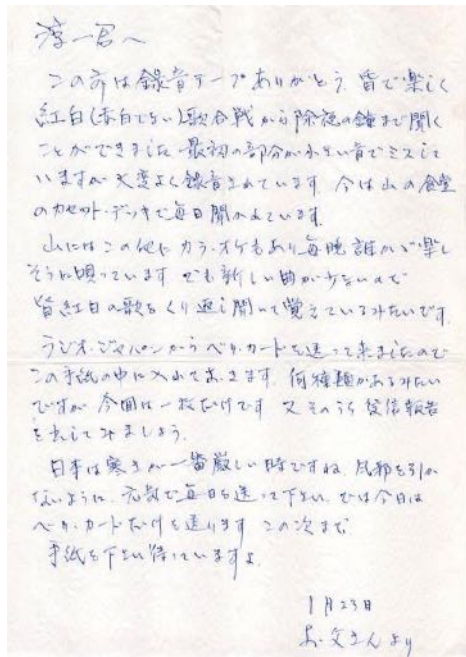 淳一君へ
この前は録音テープありがとう、皆で楽しく
紅白(赤白でない)歌合戦から除夜の鐘まで聞く
ことができました 最初の部分が小さい音でミスして
いますが大変よく録音されています 今は山の食堂
のカセット・デッキで毎日聞かれています。
山にはこの他にカラ・オケもあり毎晩誰かが楽し
そうに唄っています でも新しい曲が少ないので
皆紅白の歌をくり返し聞いて覚えているみたいです。
ラジオ・ジャパンからベリ・カードを送って来ましたので
この手紙の中に入れておきます。何種類かあるみたい
ですが 今回は一枚だけです 又そのうち受信報告
を出してみましょう。
日本は寒さが一番厳しい時ですね、風邪を引か
ないように、元気で毎日を送って下さい、では今日は
ベリ・カードだけを送ります この次まで
手紙を下さい 待っていますよ
1月23日
お父さんより